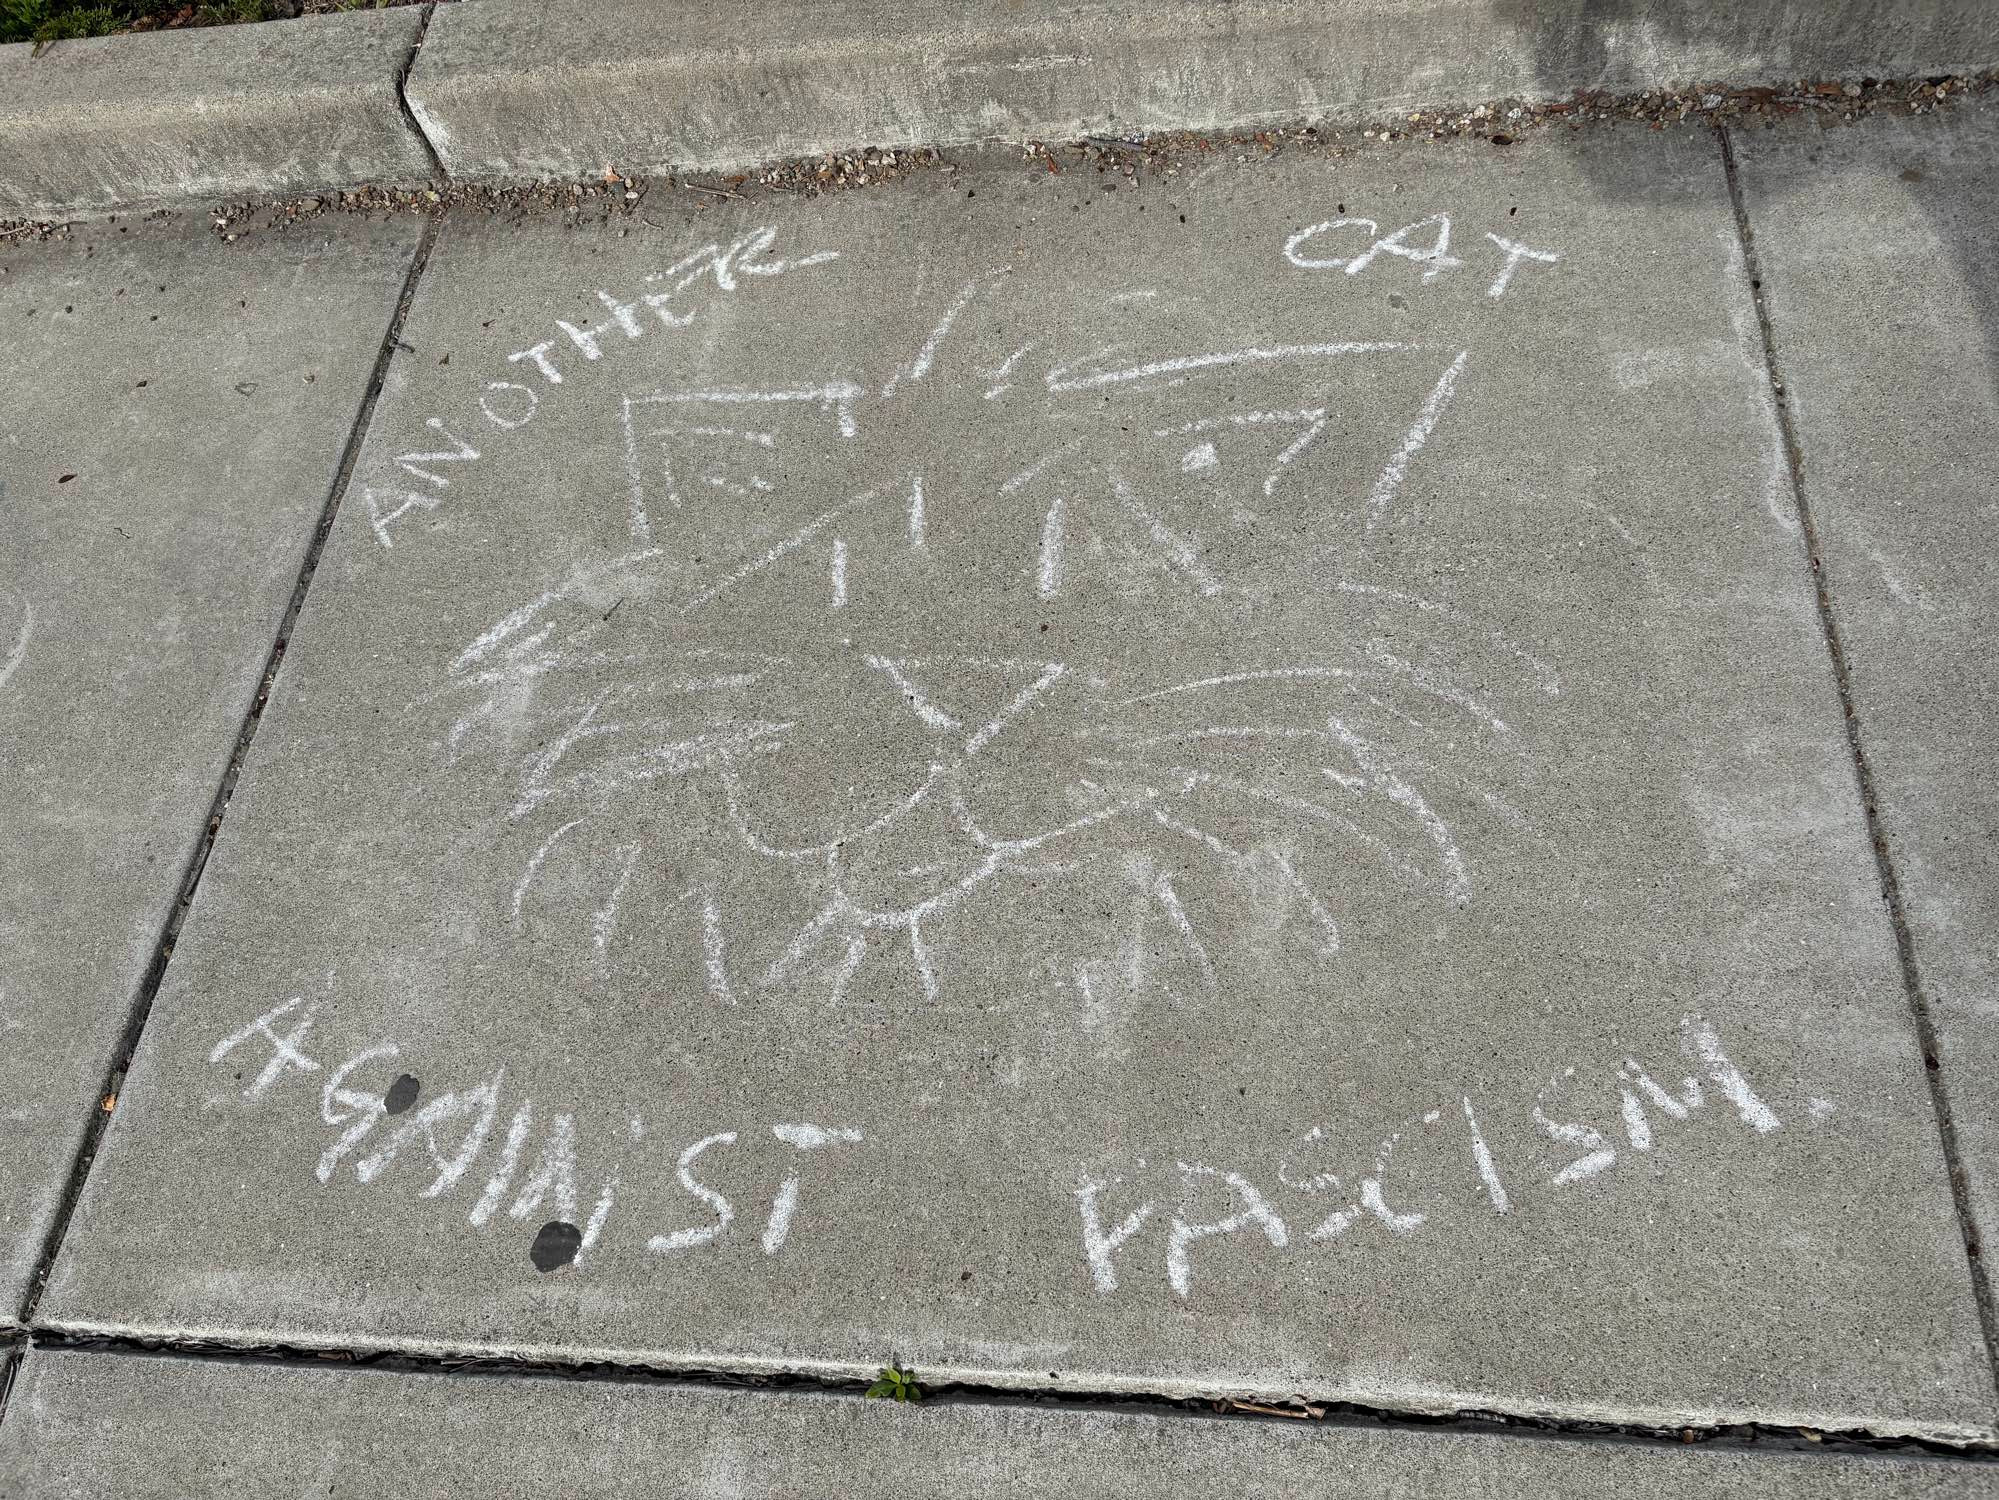 ANOTHER CAT
AGAINST FASCISM